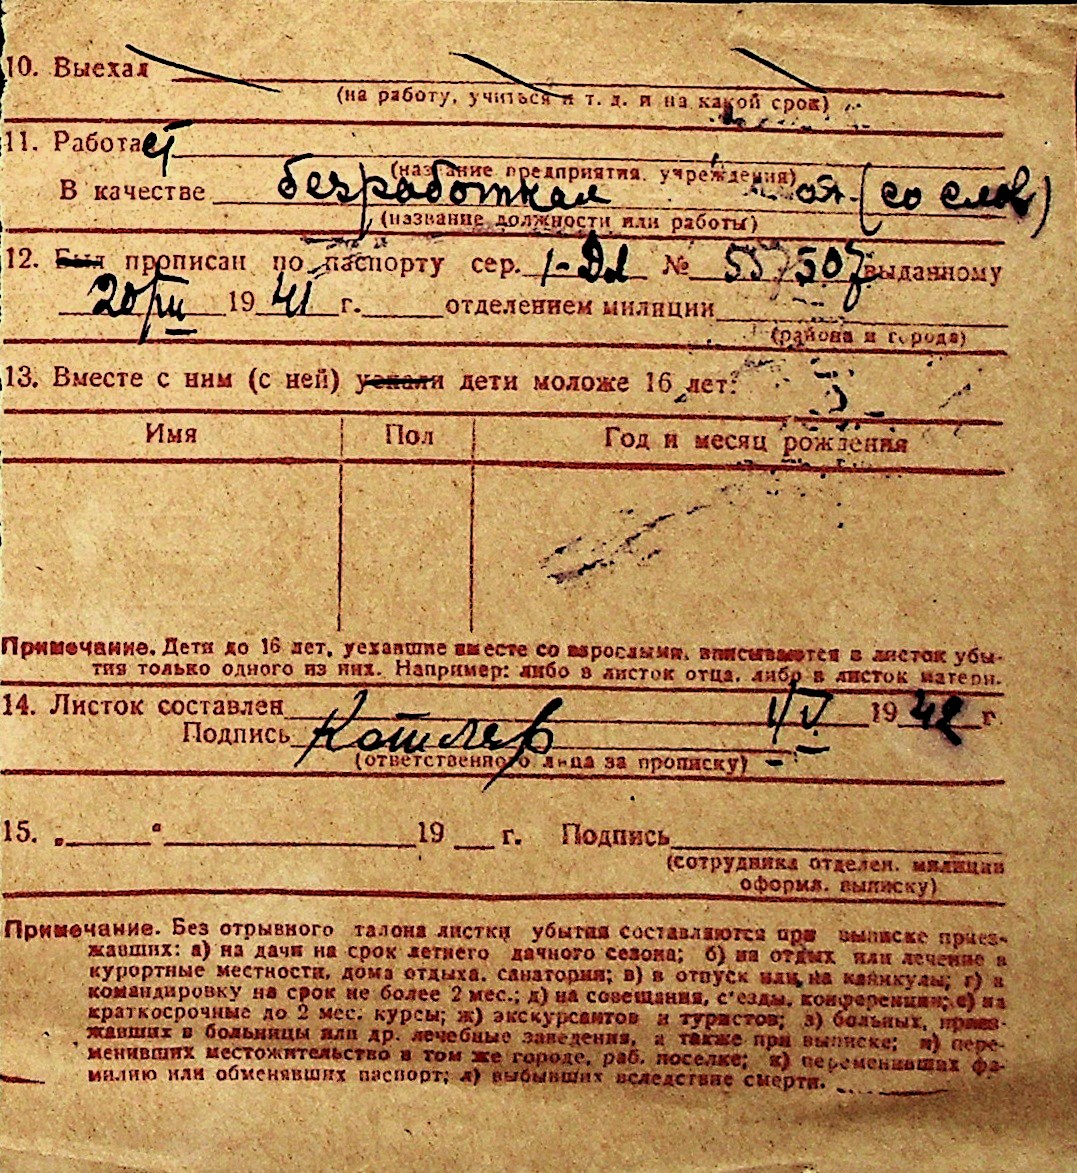 10. Выехал
(на работу, учиться и т. д. и на какой срок)
11. Работает
(название предприятия, учреждения)
В качестве безработная (со слов)
(название должности или работы)
12. Был прописан по паспорту сер. № 557507 выданному
20/III 1941 г. отделением милиции
(района и города)
13. Вместе с ним (с ней) уехали дети моложе 16 лет:
Имя Пол Год и месяц рождения
Примечание. Дети до 16 лет, уехавшие вместе со взрослыми, вписываются в листок убы-
тия только одного из них. Например: либо в листок отца, либо в листок матери.
14. Листок составлен 1/V 1942 г.
Подпись
(ответственного лица за прописку)
15. „ “ 19 г. Подпись
(сотрудника отделен. милиции
оформл. выписку)
Примечание. Без отрывного талона листки убытия составляются при выписке приез-
жавших: а) на дачи на срок летнего дачного сезона; б) на отдых или лечение в
курортные местности, дома отдыха, санатории; в) в отпуск или на каникулы; г) в
командировку на срок не более 2 мес.; д) на совещания, с'езды, конференции; е) на
краткосрочные до 2 мес. курсы; ж) экскурсантов и туристов; з) больных, приез-
жавших в больницы или др. лечебные заведения, а также при выписке; и) пере-
менивших местожительство в том же городе, раб. поселке; к) переменивших фа-
милию или обменявших паспорт; л) выбывших вследствие смерти.